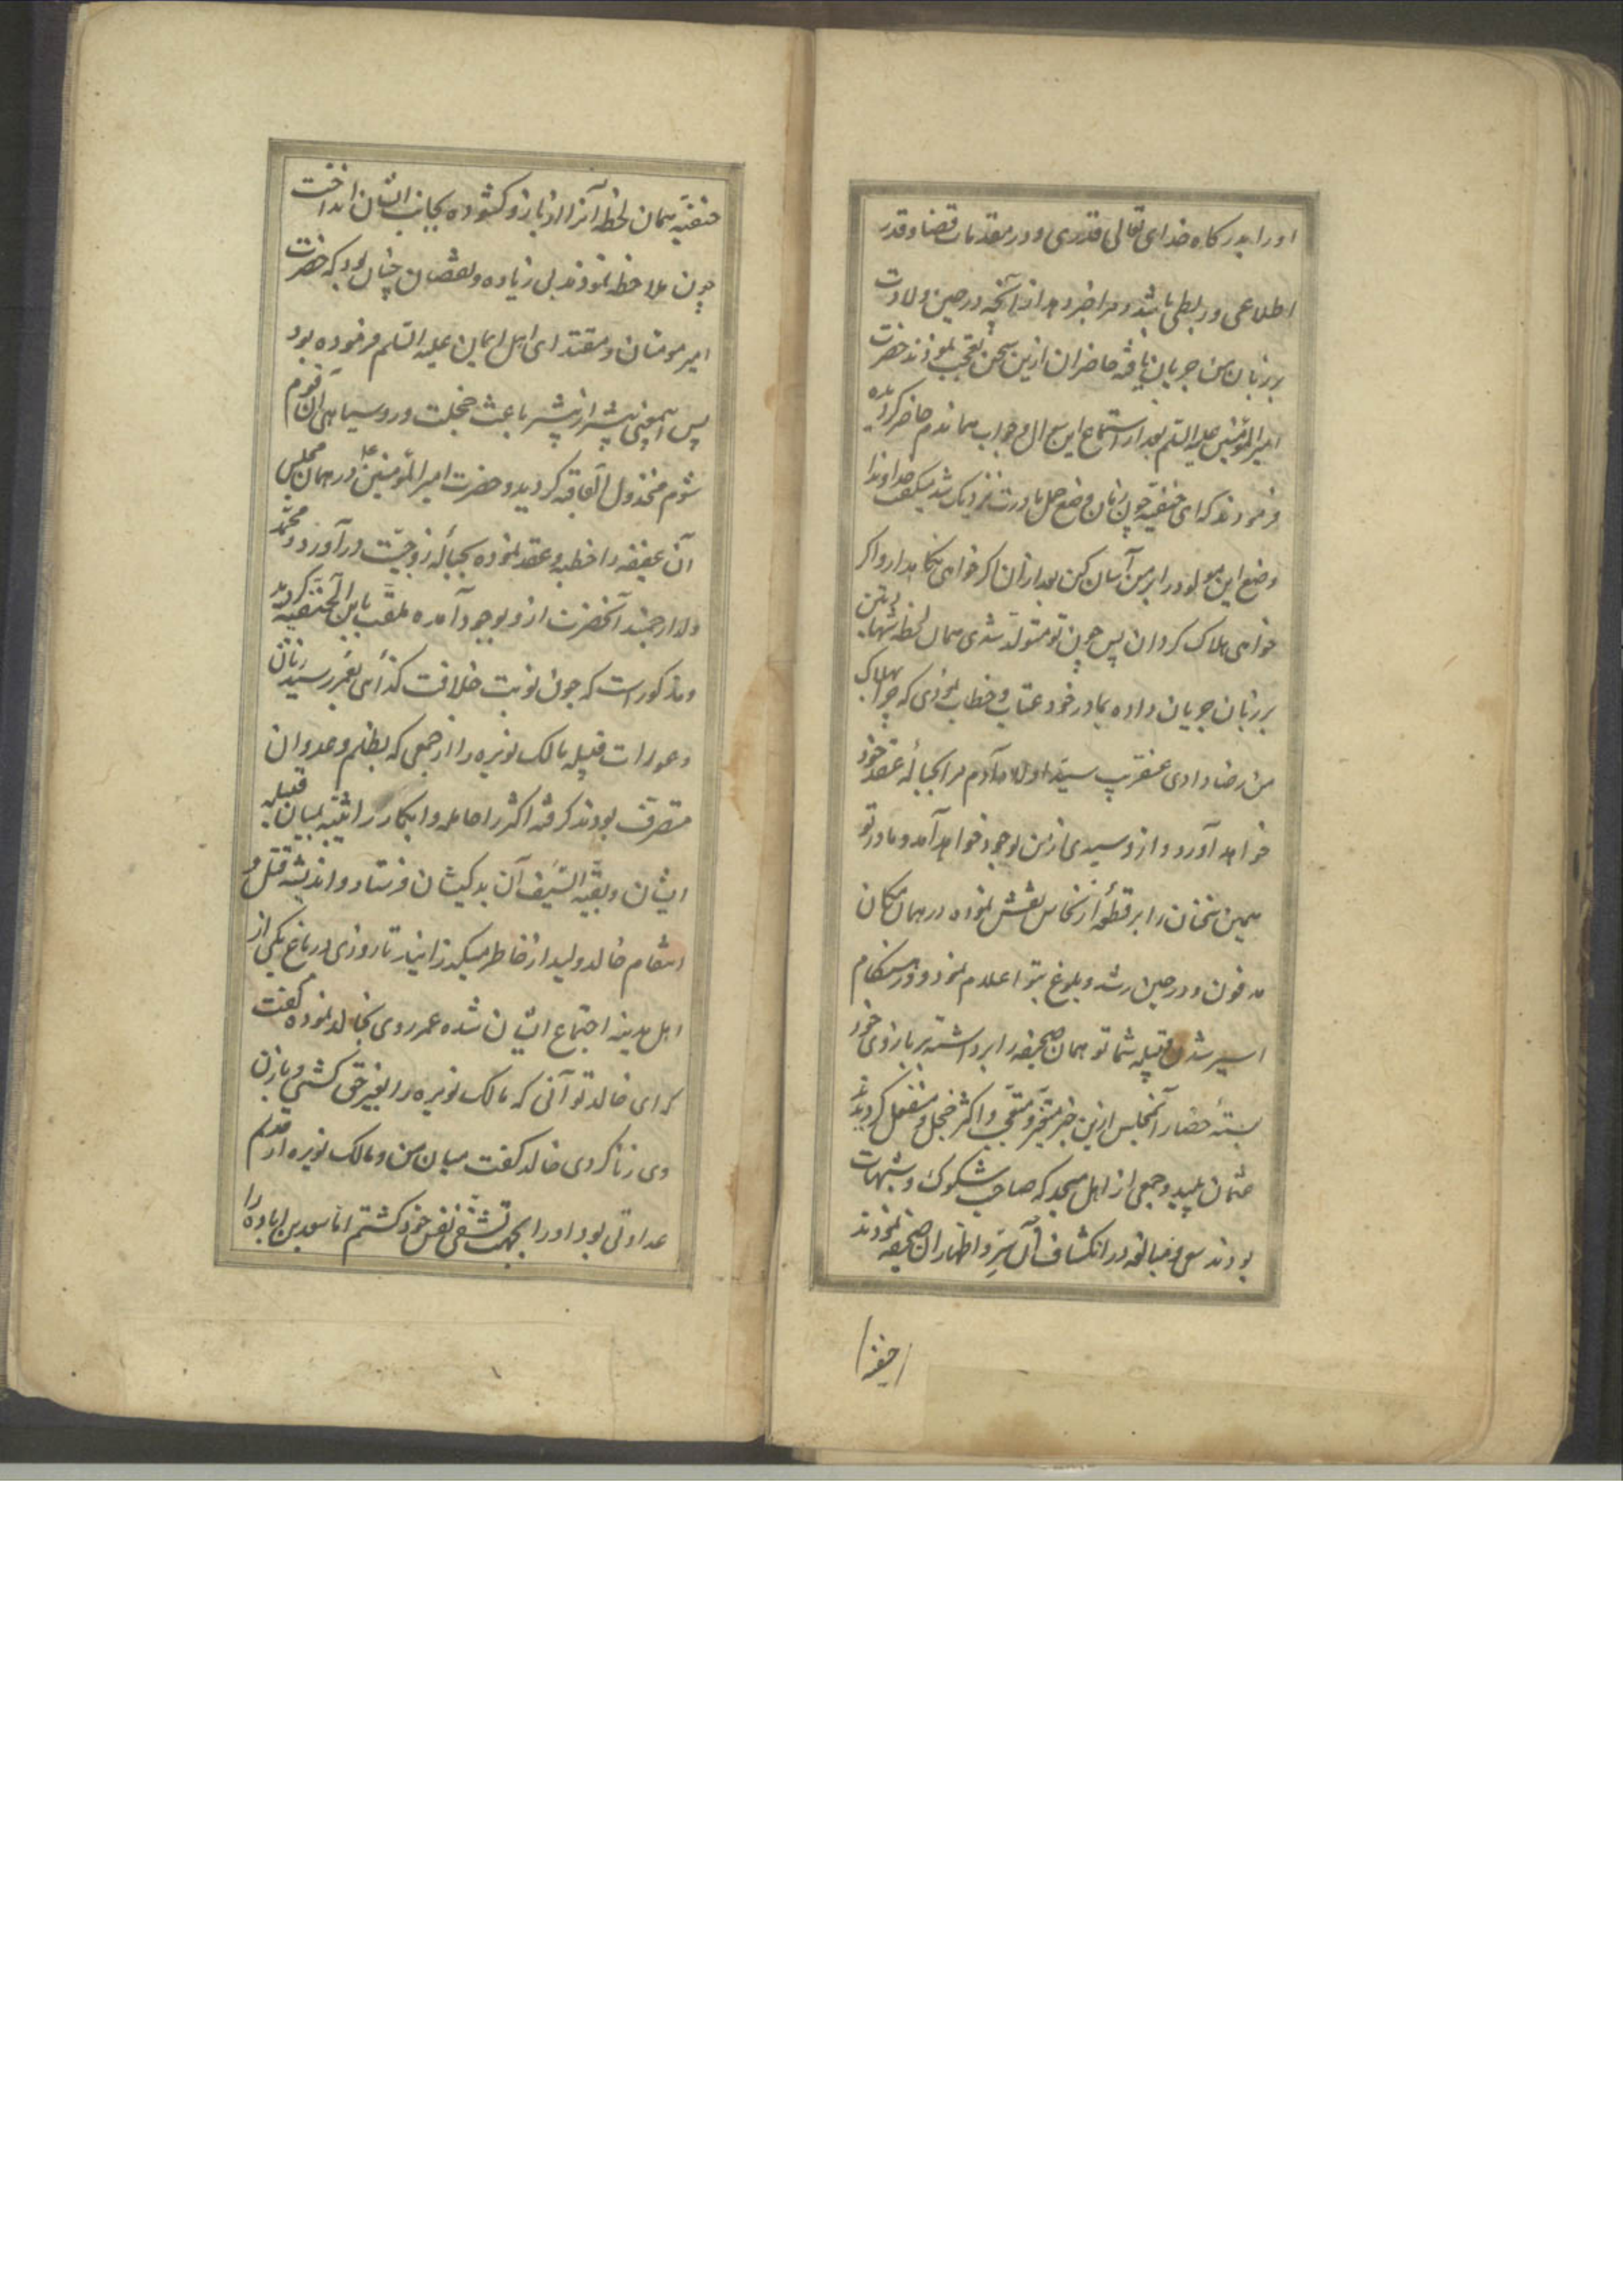 اورا بدرگاه خدای تعالی قدری و در مقدمات قضا و قدر
اطلاعی و ربطی باشد و مرا خبر دهد از آنچه در حین ولادت
بر زبان من جریان یافته حاضران ازین سخن تعجب نمودند حضرت
امیرالمؤمنین علیه السلم بعد از استماع این سؤال و جواب هماندم حاضر گردیده
فرمودند که ای حنفیه چون زمان وضع حمل مادرت نزدیک شد میگفت خداوندا
وضع این مولود را بر من آسان کن بعد از آن اگر خواهی نگاهدار و اگر
خواهی هلاک گردان پس چون تو متولد شدی همان لحظه شهادتین
بر زبان جریان داده بمادر خود عتاب و خطاب نمودی که چرا بهلاک
من رضا دادی عنقریب سید اولاد آدم مرا بحباله عقد خود
خواهد آورد و ازو سیدی از من بوجود خواهد آمد و مادر تو
همین سخنان را بر قطعه از نحاس نقش نموده در همان مکان
مدفون و در حین رشد و بلوغ بتو اعلام نمود و در هنگام
اسیر شدن قبیله شما تو همان صحیفه را برداشته بر بازوی خود
بسته حضار آنمجلس ازین خبر متحیر و متعجب و اکثر خجل و منفعل گردیدند
عثمان پلید و جمعی از اهل مسجد که صاحب شکوک و شبهات
بودند سعی و مبالغه در انکشاف آن سرّ و اظهار آن صحیفه نمودند
حنفیه
حنفیّه همان لحظه آنرا از بازو گشوده بجانب ایشان انداخت
چون ملاحظه نمودند بی زیاده و نقصان چنان بود که حضرت
امیر مومنان و مقتدای اهل ایمان علیه السلم فرموده بود
پس اینمعنی بیشتر از پیشتر باعث خجلت و روسیاهی آن قوم
شوم مخذول العاقبه گردید و حضرت امیر المؤمنین ع در همان مجلس
آن عفیفه را خطبه و عقد نموده بحباله زوجیّت درآورد و محمّد
ولد ارجمند آنحضرت ازو بوجود آمده ملقّب بابن الحنفیّه گردید
و مذکور است که چون نوبت خلافت کذائی بعمر رسید زنان
و عورات قبیله مالک نویره را از جمعی که بظلم و عدوان
متصرف بودند گرفته اکثر را حامله و ابکار را ثیّبه بمیان قبیله
ایشان و بقیّه السّیف آن بدکیشان فرستاد و اندیشه قتل و
انتقام خالد ولید از خاطر میگذرانید تا روزی در باغ یکی از
اهل مدینه اجتماع ایشان شده عمر روی بخالد نموده گفت
که ای خالد تو آنی که مالک نویره را بغیر حق کشتی و با زن
وی زنا کردی خالد گفت میان من و مالک نویره از قدیم
عداوتی بود او را بجهت تشفّی نفس خود کشتم اما سعد بن عباده را